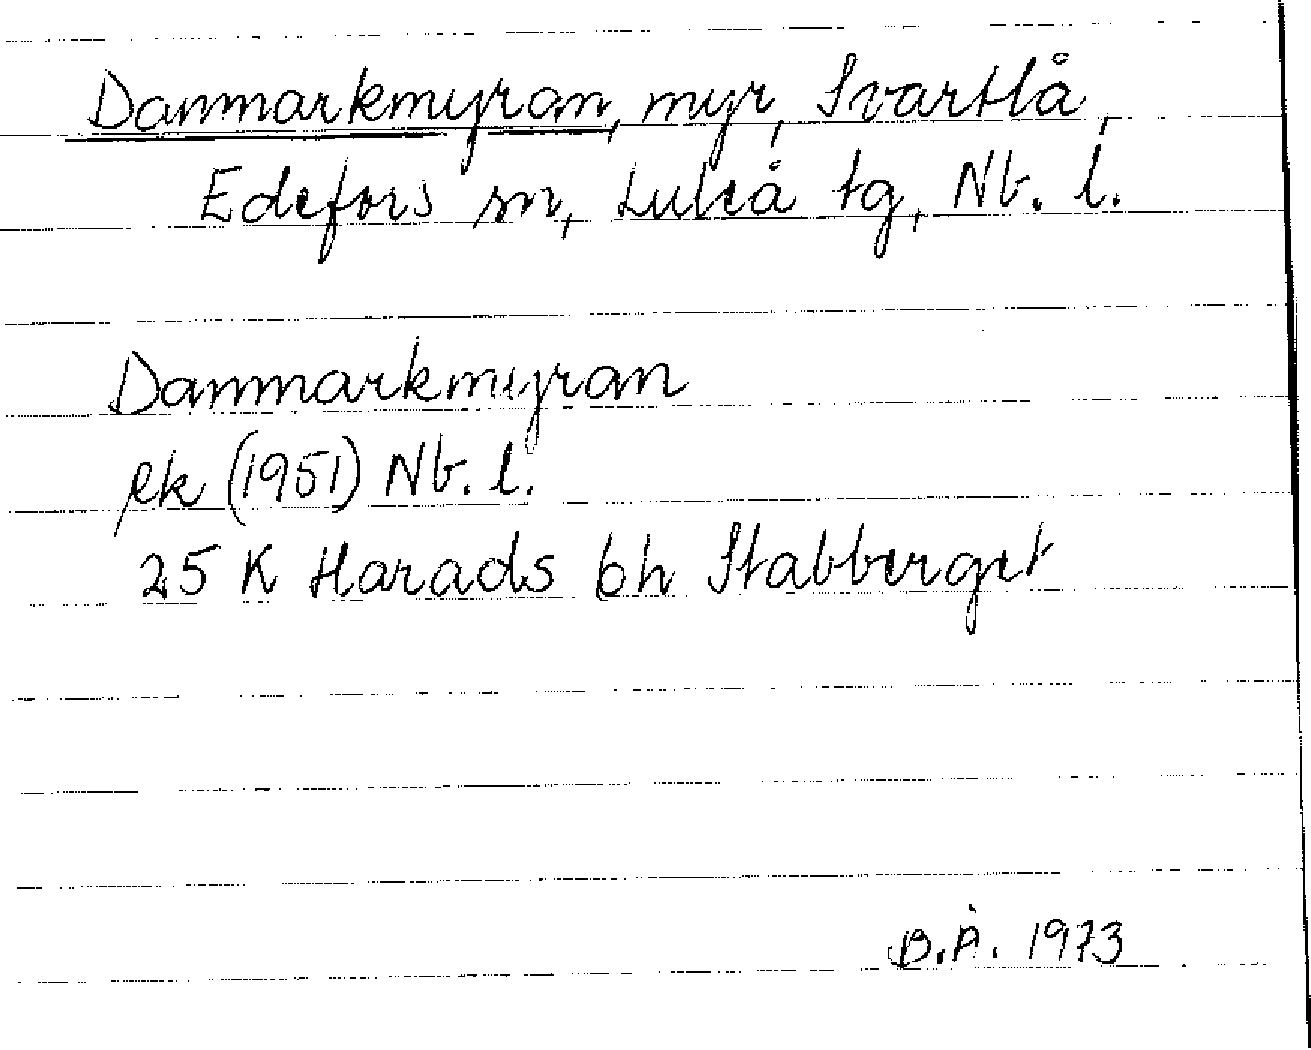 Danmarkmyran, myr, Svartlå,
Edefors sn, Luleå tg, Nb. l.
Danmarkmyran
ek (1951) Nb. l.
25 K Harads 6h Stabberget
B.Å. 1973